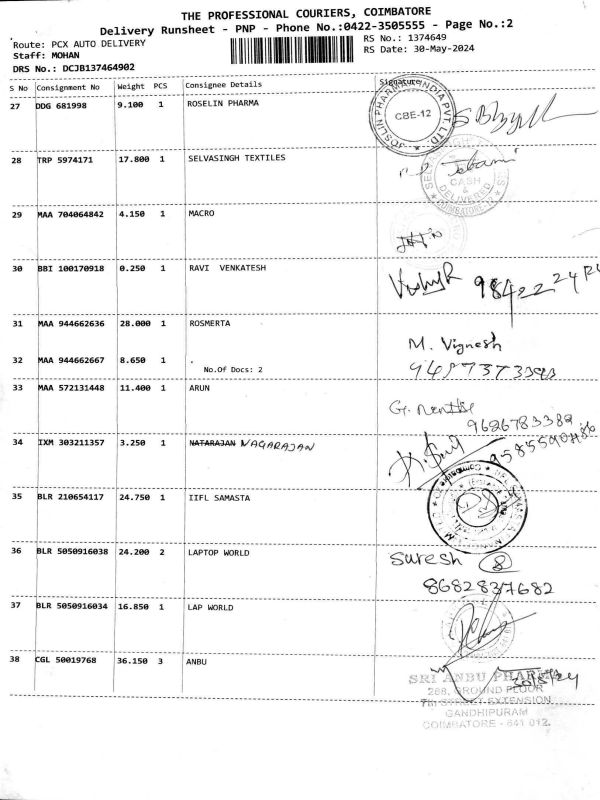 THE PROFESSIONAL COURIERS, COIMBATORE
Delivery Runsheet - PNP - Phone No.:0422-3505555 - Page No.:2
Route: PCX AUTO DELIVERY
RS No.: 1374649
Staff: MOHAN
RS Date: 30-May-2024
DRS No.: DCJB137464902
S No Consignment No Weight PCS Consignee Details Signature
27 DDG 681998 9.100 1 ROSELIN PHARMA
CBE-12
28 TRP 5974171 17.800 1 SELVASINGH TEXTILES
CASH &
DELIVERED
COIMBATORE 12
29 MAA 704064842 4.150 1 MACRO
30 BBI 100170918 0.250 1 RAVI VENKATESH
31 MAA 944662636 28.000 1 ROSMERTA
M. Vignesh
32 MAA 944662667 8.650 1
No.Of Docs: 2
33 MAA 572131448 11.400 1 ARUN
9626783389
34 IXM 303211357 3.250 1 NATARAJAN NAGARAJAN
35 BLR 210654117 24.750 1 IIFL SAMASTA
36 BLR 5050916038 24.200 2 LAPTOP WORLD
Suresh 8
8682837682
37 BLR 5050916034 16.850 1 LAP WORLD
38 CGL 50019768 36.150 3 ANBU
SRI ANBU PHARMA
288, GROUND FLOOR
7th STREET EXTENSION
GANDHIPURAM
COIMBATORE - 641 012.